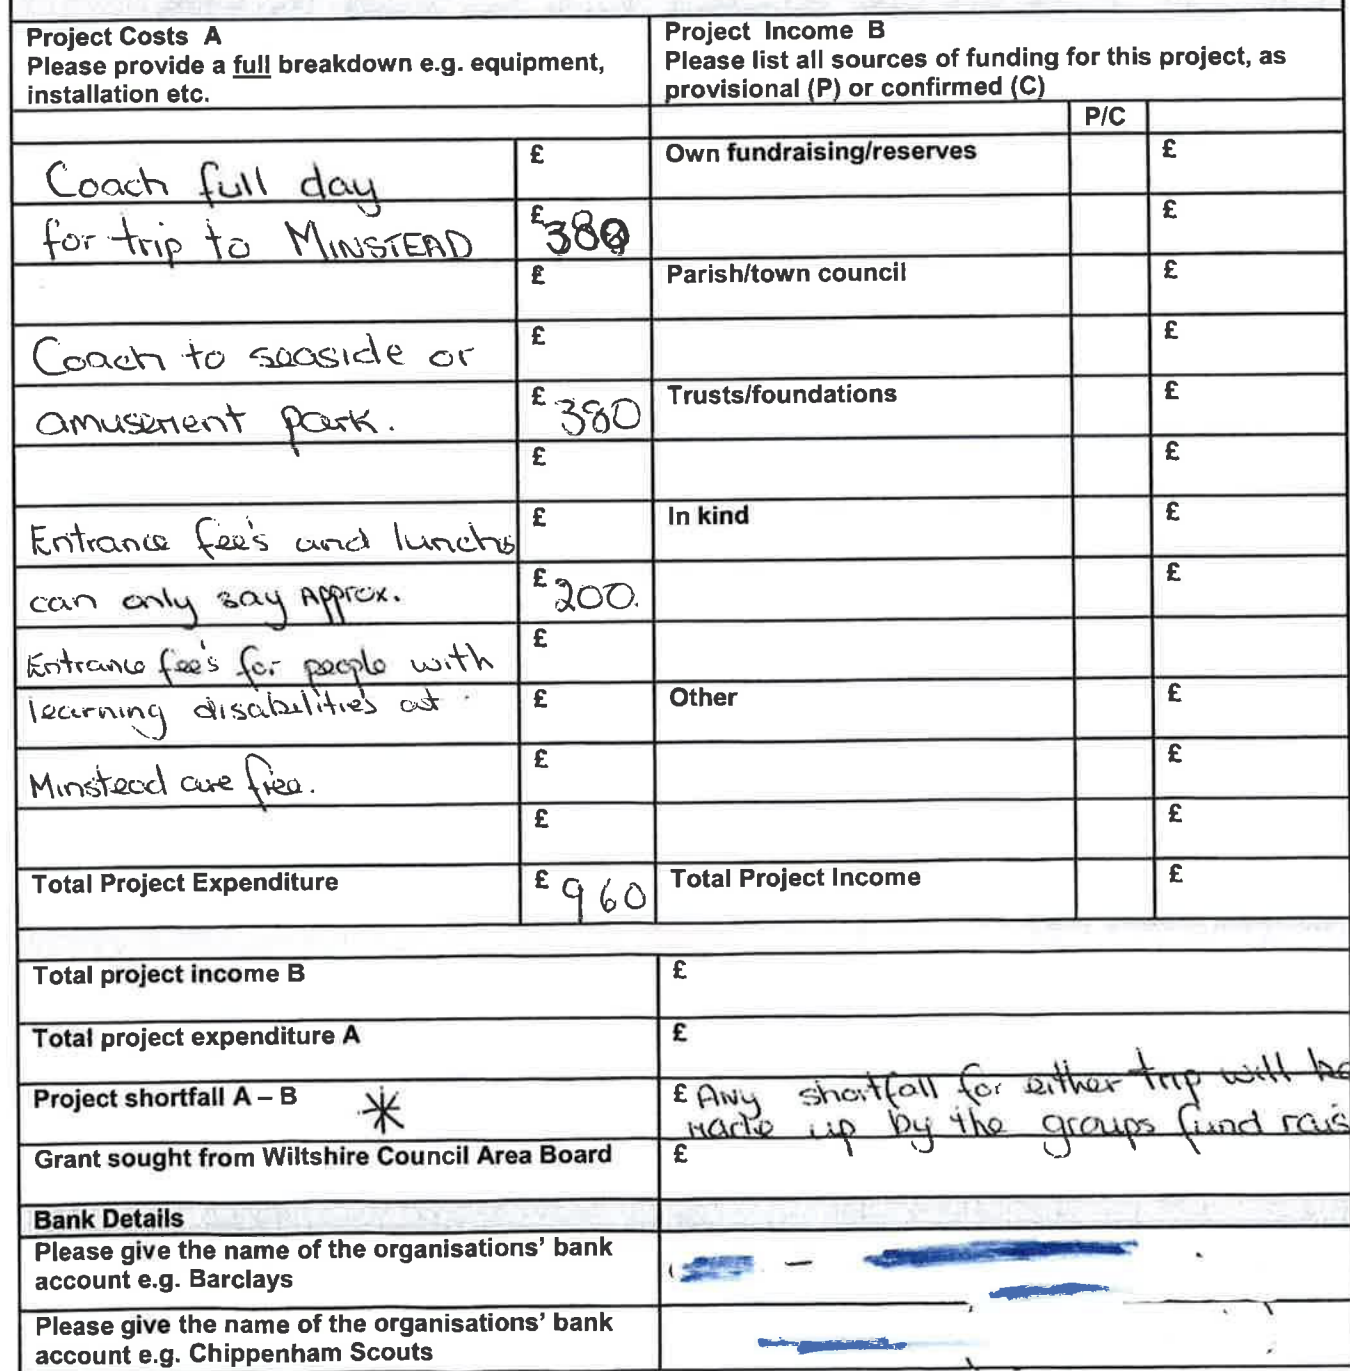 Project Costs A
Please provide a full breakdown e.g. equipment,
installation etc.
Project Income B
Please list all sources of funding for this project, as
provisional (P) or confirmed (C)
P/C
Coach full day
£
Own fundraising/reserves
£
for trip to MINSTEAD
£ 380
£
£
Parish/town council
£
Coach to seaside or
£
£
amusement park.
£ 380
Trusts/foundations
£
£
£
Entrance fee's and lunchs
£
In kind
£
can only say Approx.
£ 200.
£
Entrance fee's for people with
£
learning disabilities at
£
Other
£
Minstead are free.
£
£
£
£
Total Project Expenditure
£ 960
Total Project Income
£
Total project income B
£
Total project expenditure A
£
Project shortfall A – B *
£ Any shortfall for either trip will be
made up by the groups fund rais
Grant sought from Wiltshire Council Area Board
£
Bank Details
Please give the name of the organisations' bank
account e.g. Barclays
Please give the name of the organisations' bank
account e.g. Chippenham Scouts